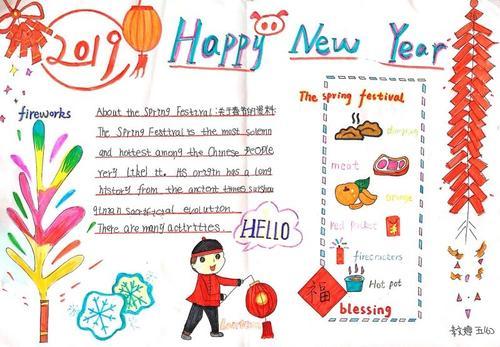 2019
Happy New Year
fireworks
About the Spring Festival:关于春节的资料:
The Spring Festival is the most solemn
and hottest among the Chinese PEOPLE
very like it. Its origin has a long
history from the ancient times
evolution
There are many activities.
HELLO
The spring festival
dumpling
meat
orange
red packet
firecrackers
Hot pot
福
blessing